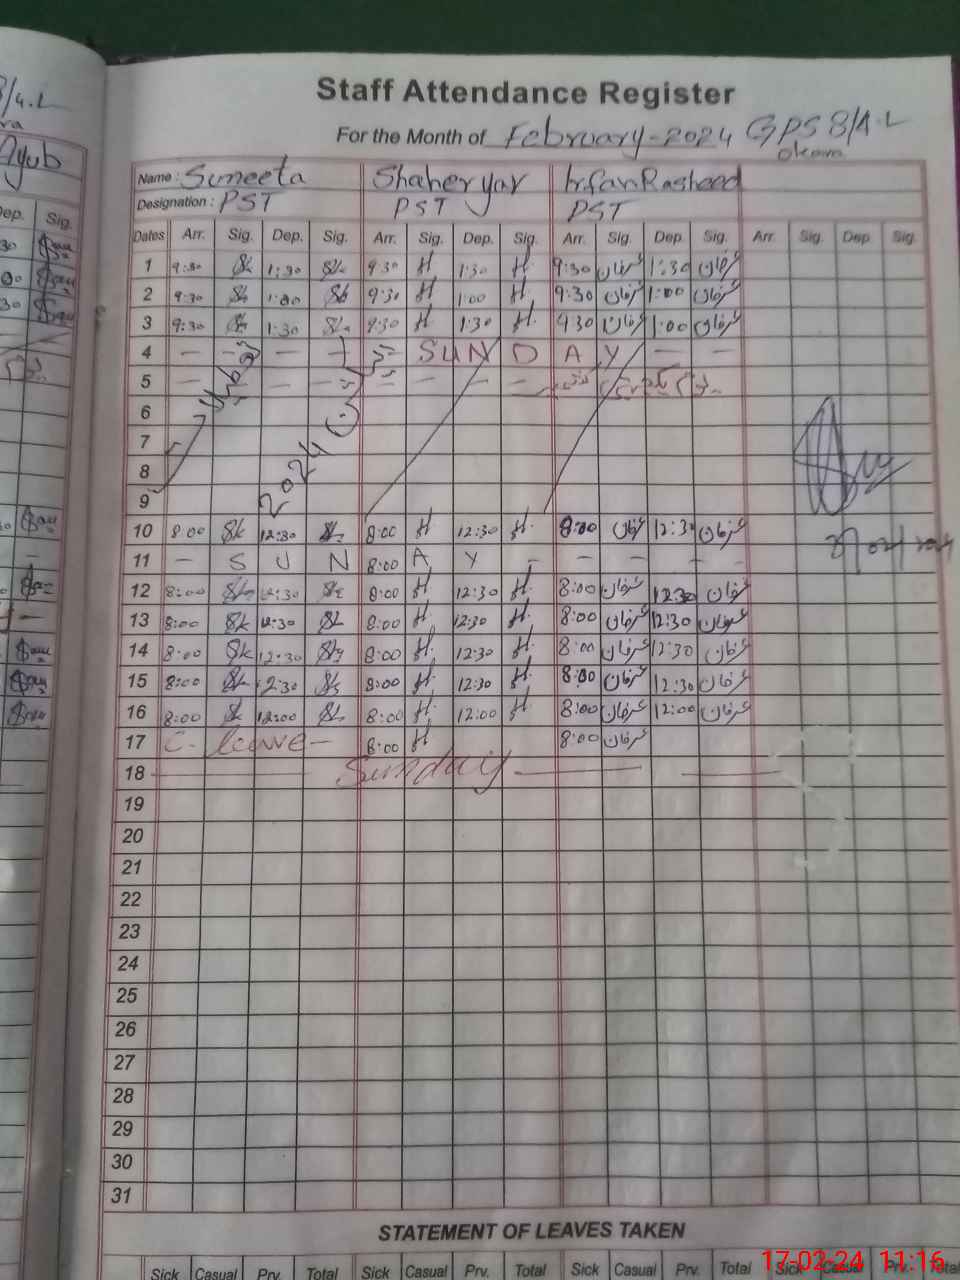 Staff Attendance Register
For the Month of February-2024 GPS 8/4.L
okara
Name : Sumeeta Shaheryar Irfan Rasheed
Designation : PST PST PST
Dates Arr. Sig. Dep. Sig. Arr. Sig. Dep. Sig. Arr. Sig. Dep. Sig. Arr. Sig. Dep Sig.
1 9:30 1:30 9:30 1:30 9:30 عرفان 1:30 عرفان
2 9:30 1:00 9:30 1:00 9:30 عرفان 1:00 عرفان
3 9:30 1:30 9:30 1:30 9:30 عرفان 1:00 عرفان
4 — — — — SUNDAY — —
5 — — — —
6
7
8
2024
9
10 8:00 12:30 8:00 12:30 8:00 عرفان 12:30 عرفان
11 — S U N 8:00 A Y - - - - -
12 8:00 12:30 8:00 12:30 8:00 عرفان 12:30 عرفان
13 8:00 12:30 8:00 12:30 8:00 عرفان 12:30 عرفان
14 8:00 12:30 8:00 12:30 8:00 عرفان 12:30 عرفان
15 8:00 12:30 8:00 12:30 8:00 عرفان 12:30 عرفان
16 8:00 12:00 8:00 12:00 8:00 عرفان 12:00 عرفان
17 C. leave - 8:00 8:00 عرفان
18 Sunday
19
20
21
22
23
24
25
26
27
28
29
30
31
STATEMENT OF LEAVES TAKEN
Sick Casual Prv. Total Sick Casual Prv. Total Sick Casual Prv. Total Sick Casual Prv. Total
17-02-24 11:16